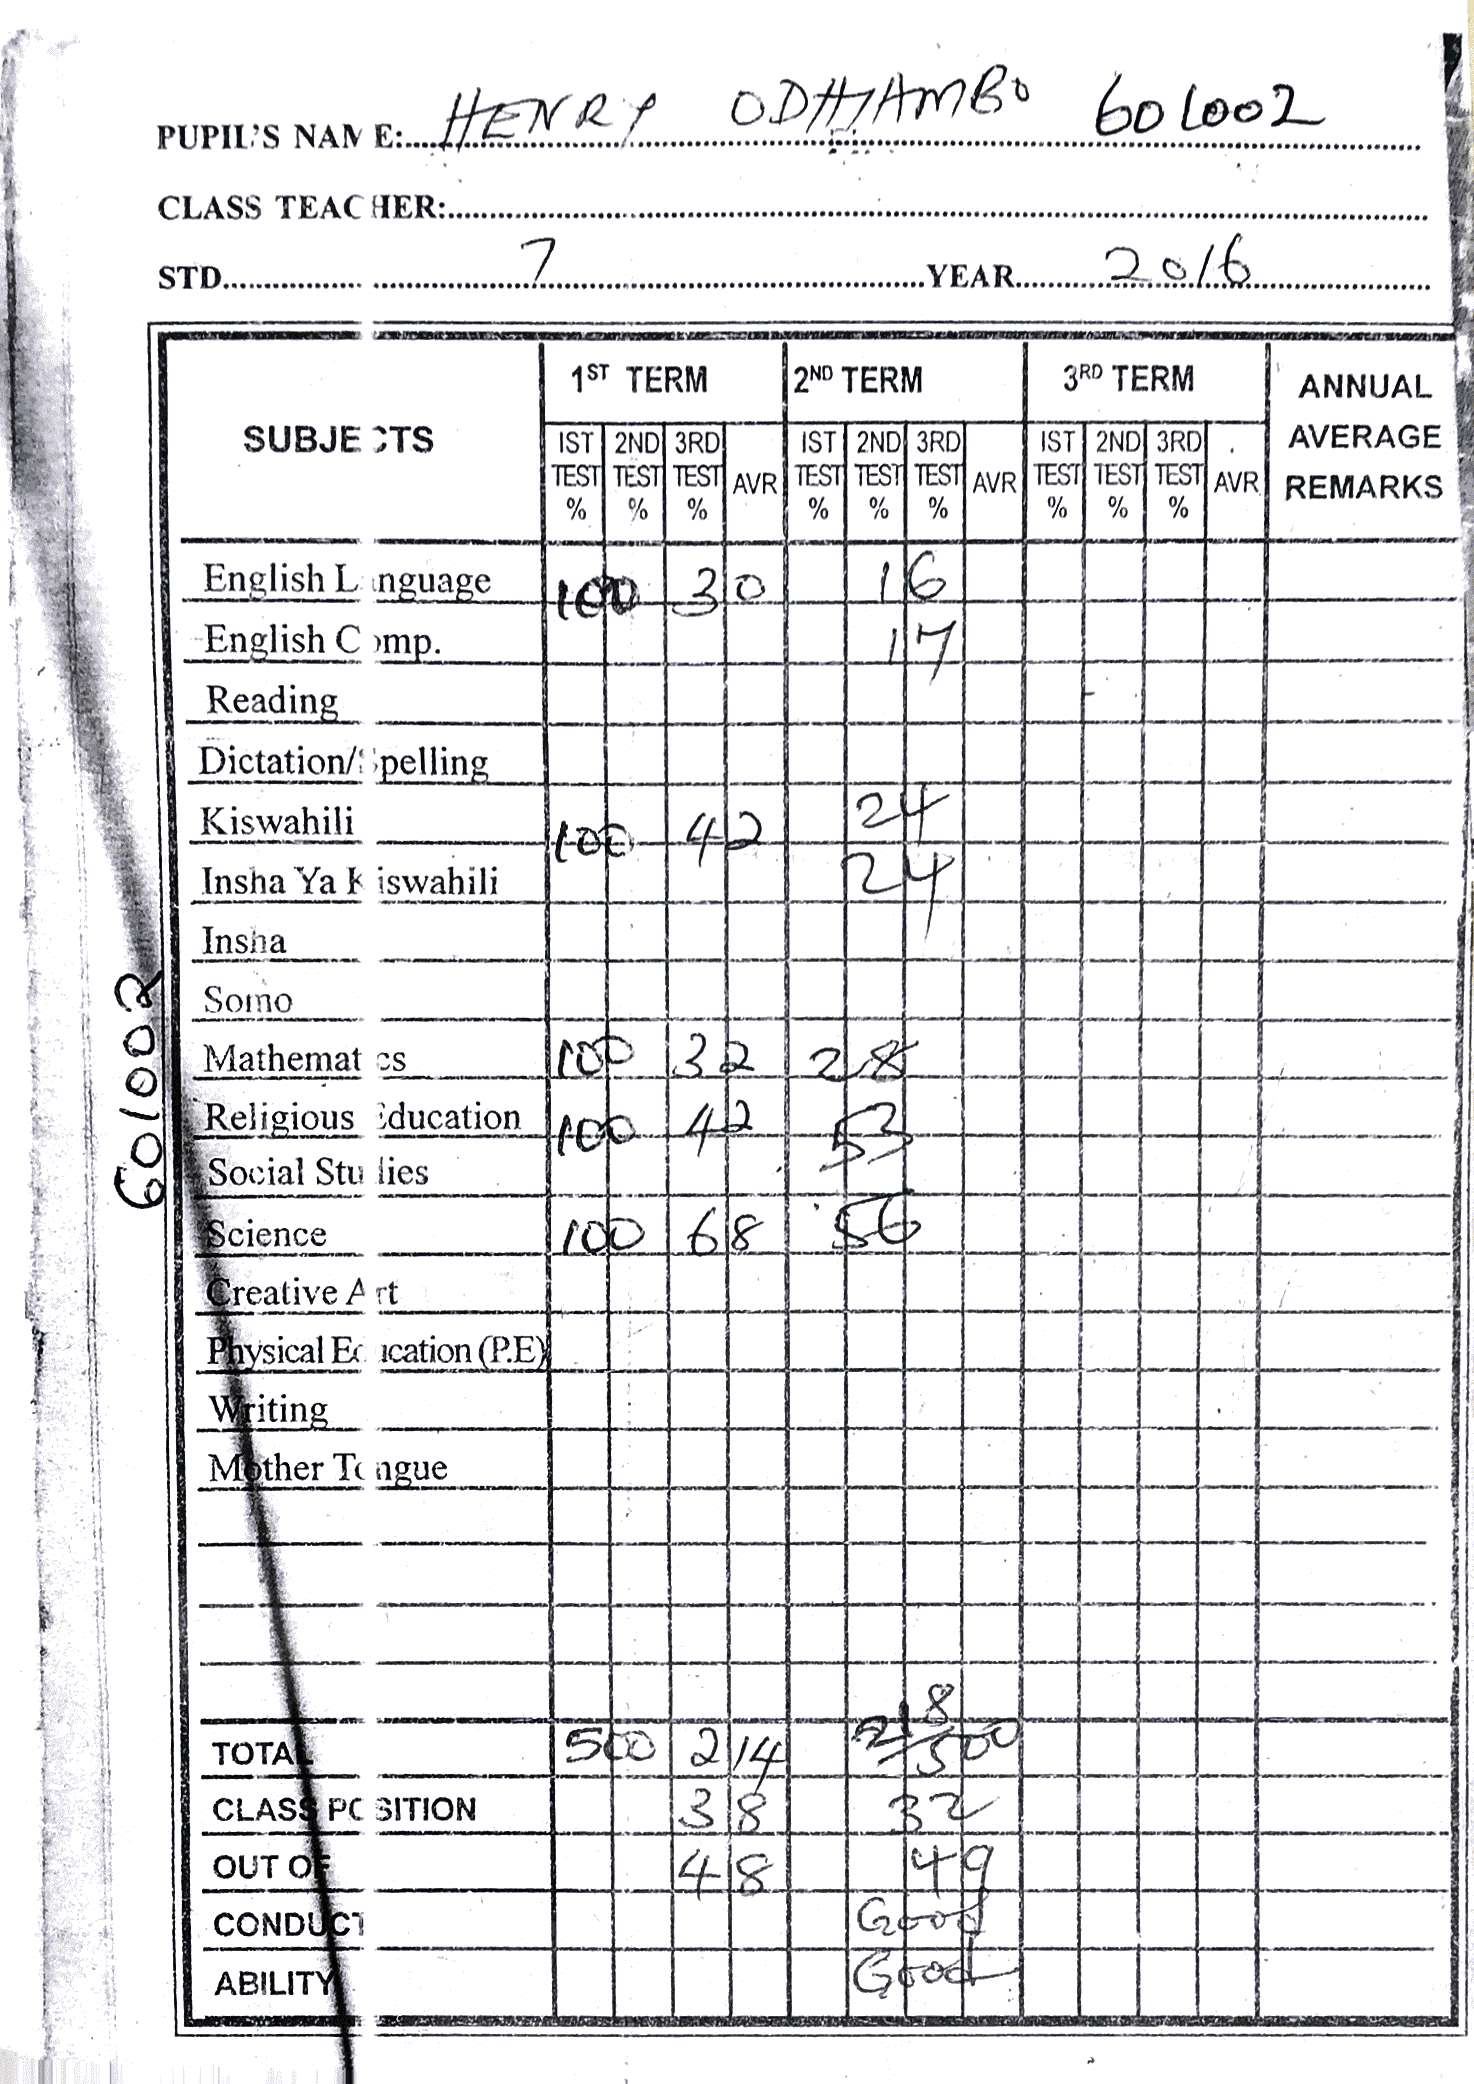 PUPIL'S NAME: HENRY ODHIAMBO 601002
CLASS TEACHER:
STD 7 YEAR 2016
SUBJECTS 1ST TERM 2ND TERM 3RD TERM ANNUAL AVERAGE REMARKS
IST TEST % 2ND TEST % 3RD TEST % AVR IST TEST % 2ND TEST % 3RD TEST % AVR IST TEST % 2ND TEST % 3RD TEST % AVR
English Language 100 30 16
English Comp. 17
Reading
Dictation/Spelling
Kiswahili 100 42 24
Insha Ya Kiswahili 24
Insha
Somo
Mathematics 100 32 28
Religious Education 100 42 53
Social Studies
Science 100 68 56
Creative Art
Physical Education (P.E)
Writing
Mother Tongue
TOTAL 500 214 218/500
CLASS POSITION 38 32
OUT OF 48 49
CONDUCT Good
ABILITY Good
601002